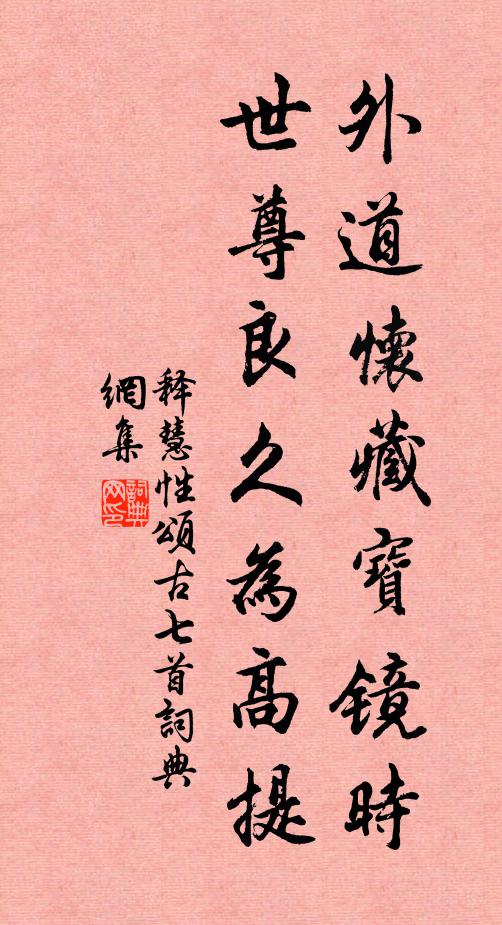 外道懷藏寶镜時
世尊良久為高提
释慧性頌古七首詞典
網集
詞典
网印